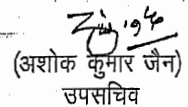 (अशोक कुमार जैन)
उपसचिव